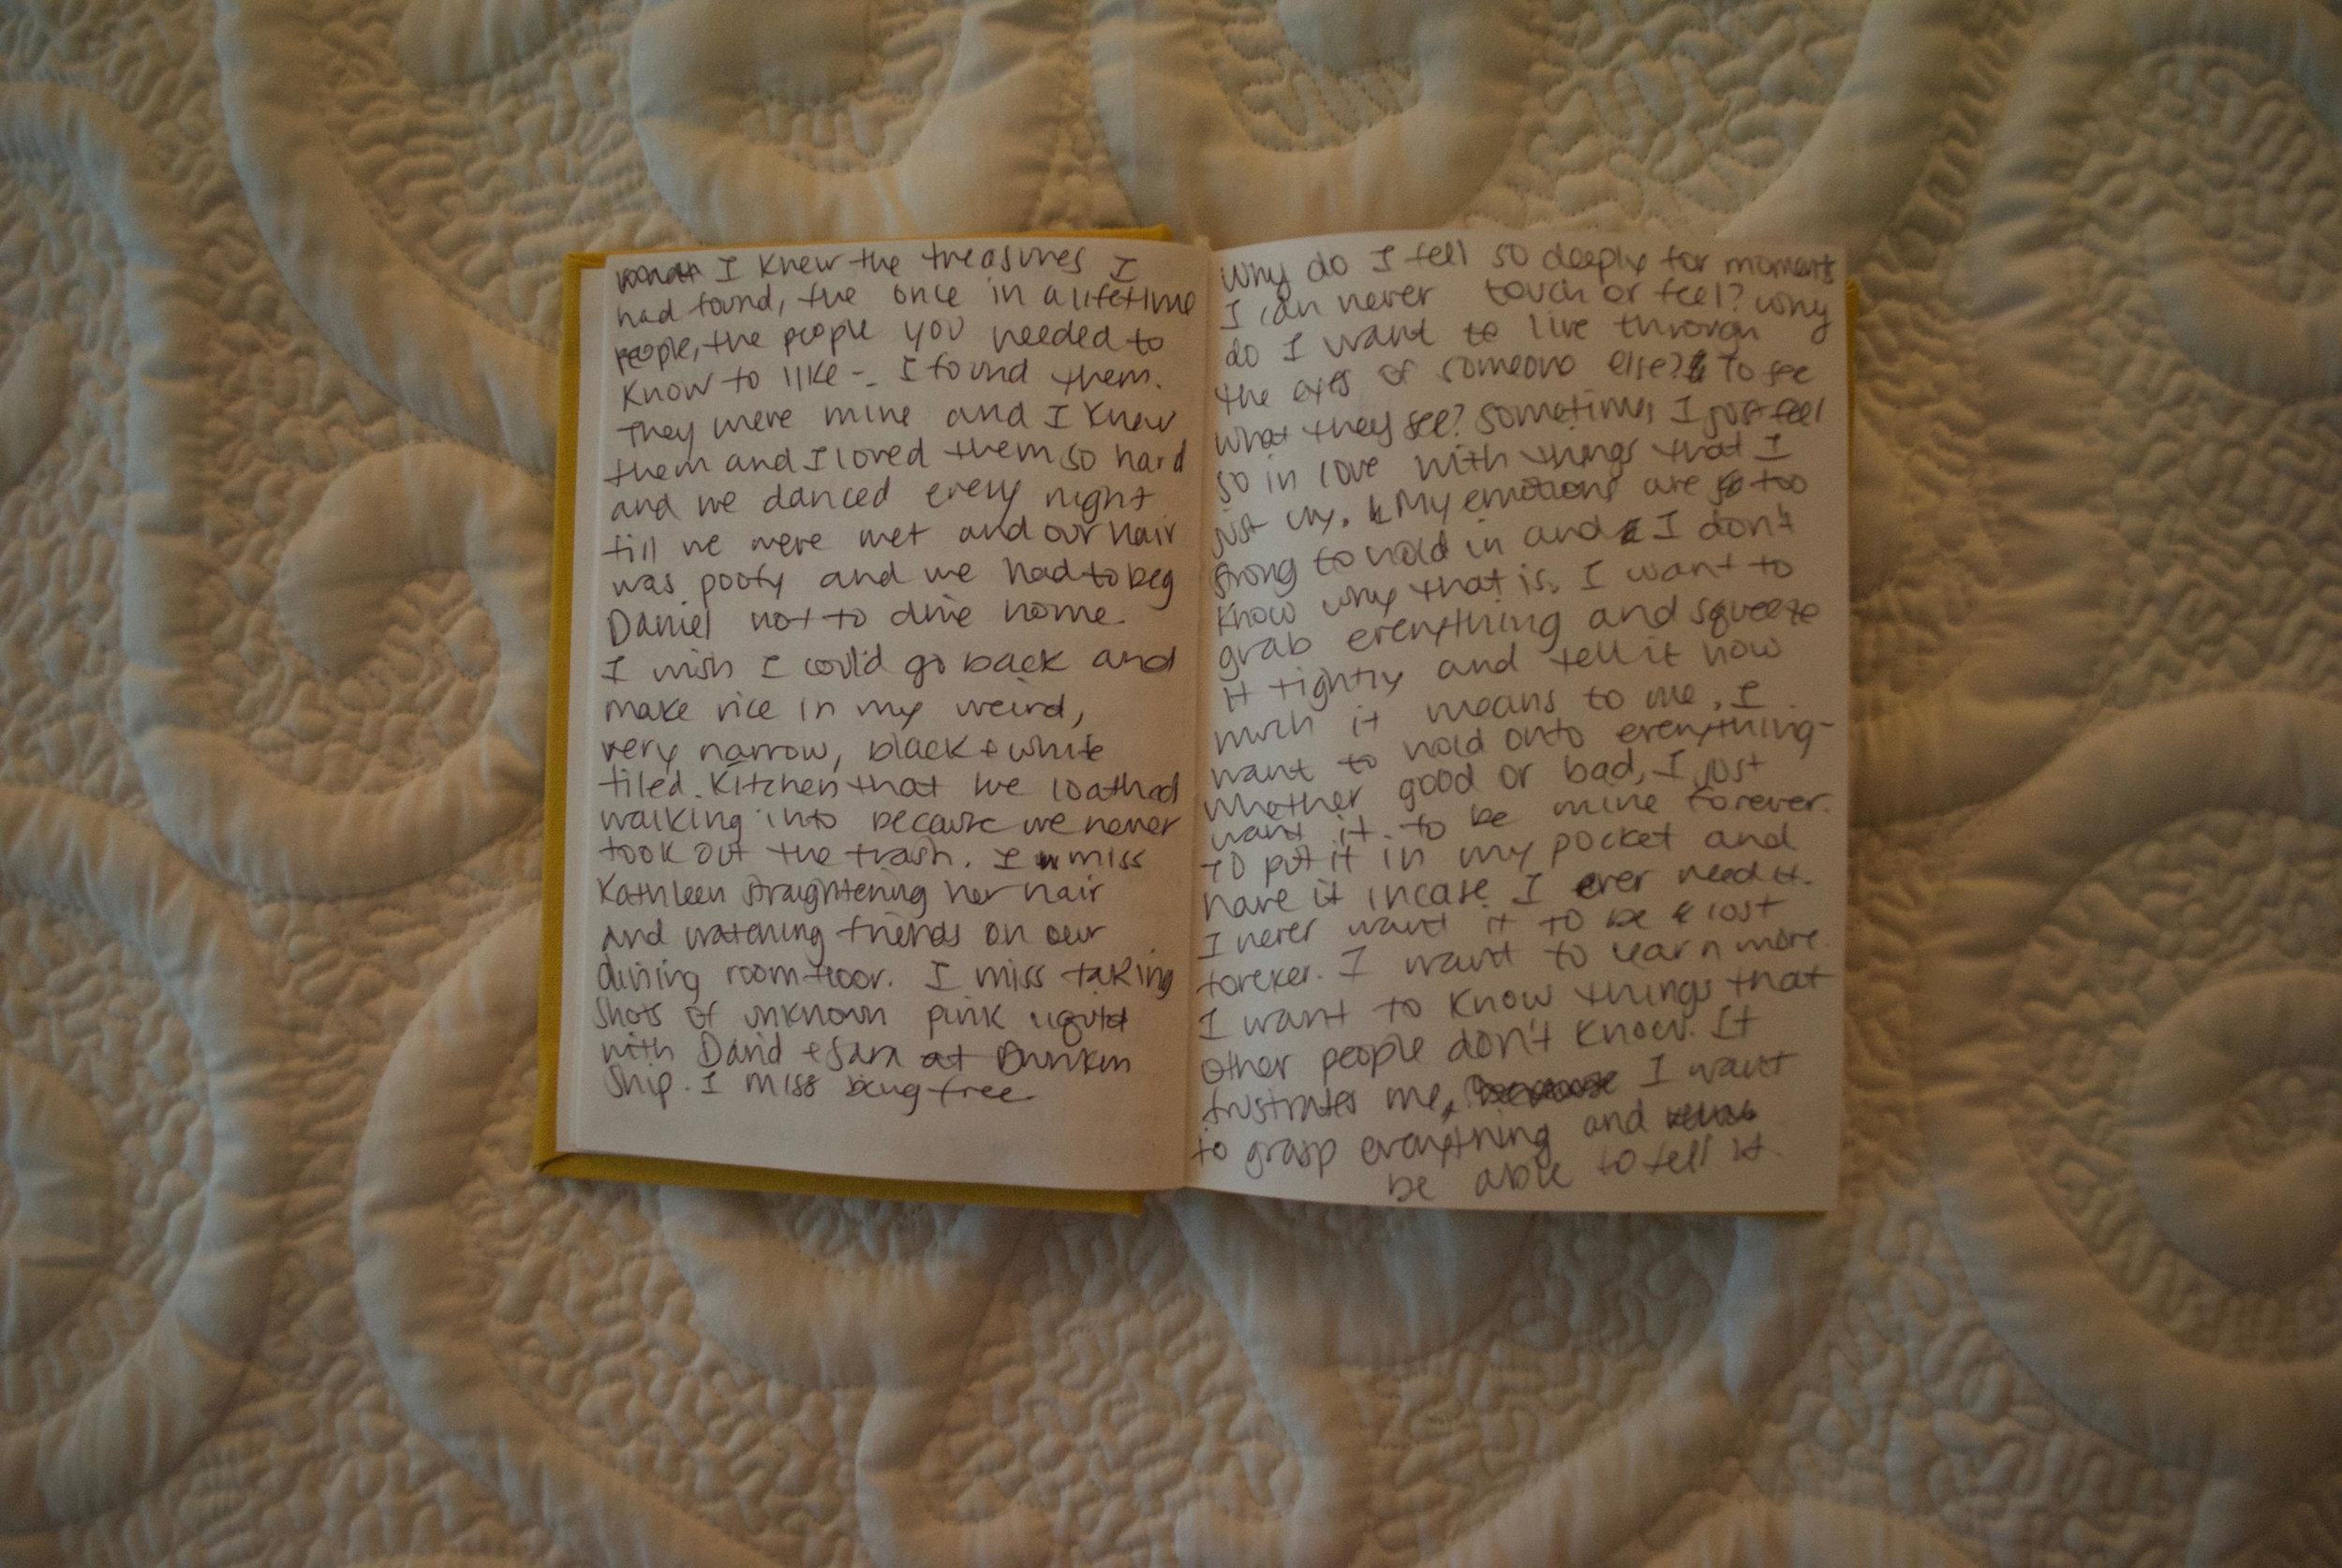 I knew the treasures I
had found, the once in a lifetime
people, the people you needed to
know to like -. I found them.
They were mine and I knew
them and I loved them so hard
and we danced every night
till we were wet and our hair
was poofy and we had to beg
Daniel not to drive home.
I wish I could go back and
make rice in my weird,
very narrow, black + white
tiled kitchen that we loathed
walking into because we never
took out the trash. I miss
Kathleen straightening her hair
and watching friends on our
dining room floor. I miss taking
shots of unknown pink liquid
with David + Sara at Drunken
Ship. I miss being free
Why do I fell so deeply for moments
I can never touch or feel? Why
do I want to live through
the eyes of someone else? To see
what they see? Sometimes I just feel
so in love with things that I
just cry. My emotions are too
strong to hold in and I don't
know why that is. I want to
grab everything and squeeze
it tightly and tell it how
much it means to me. I
want to hold onto everything-
whether good or bad, I just
want it to be mine forever.
To put it in my pocket and
have it incase I ever need it.
I never want it to be lost
forever. I want to learn more.
I want to know things that
other people don't know. It
frustrates me, because I want
to grasp everything and
be able to tell it